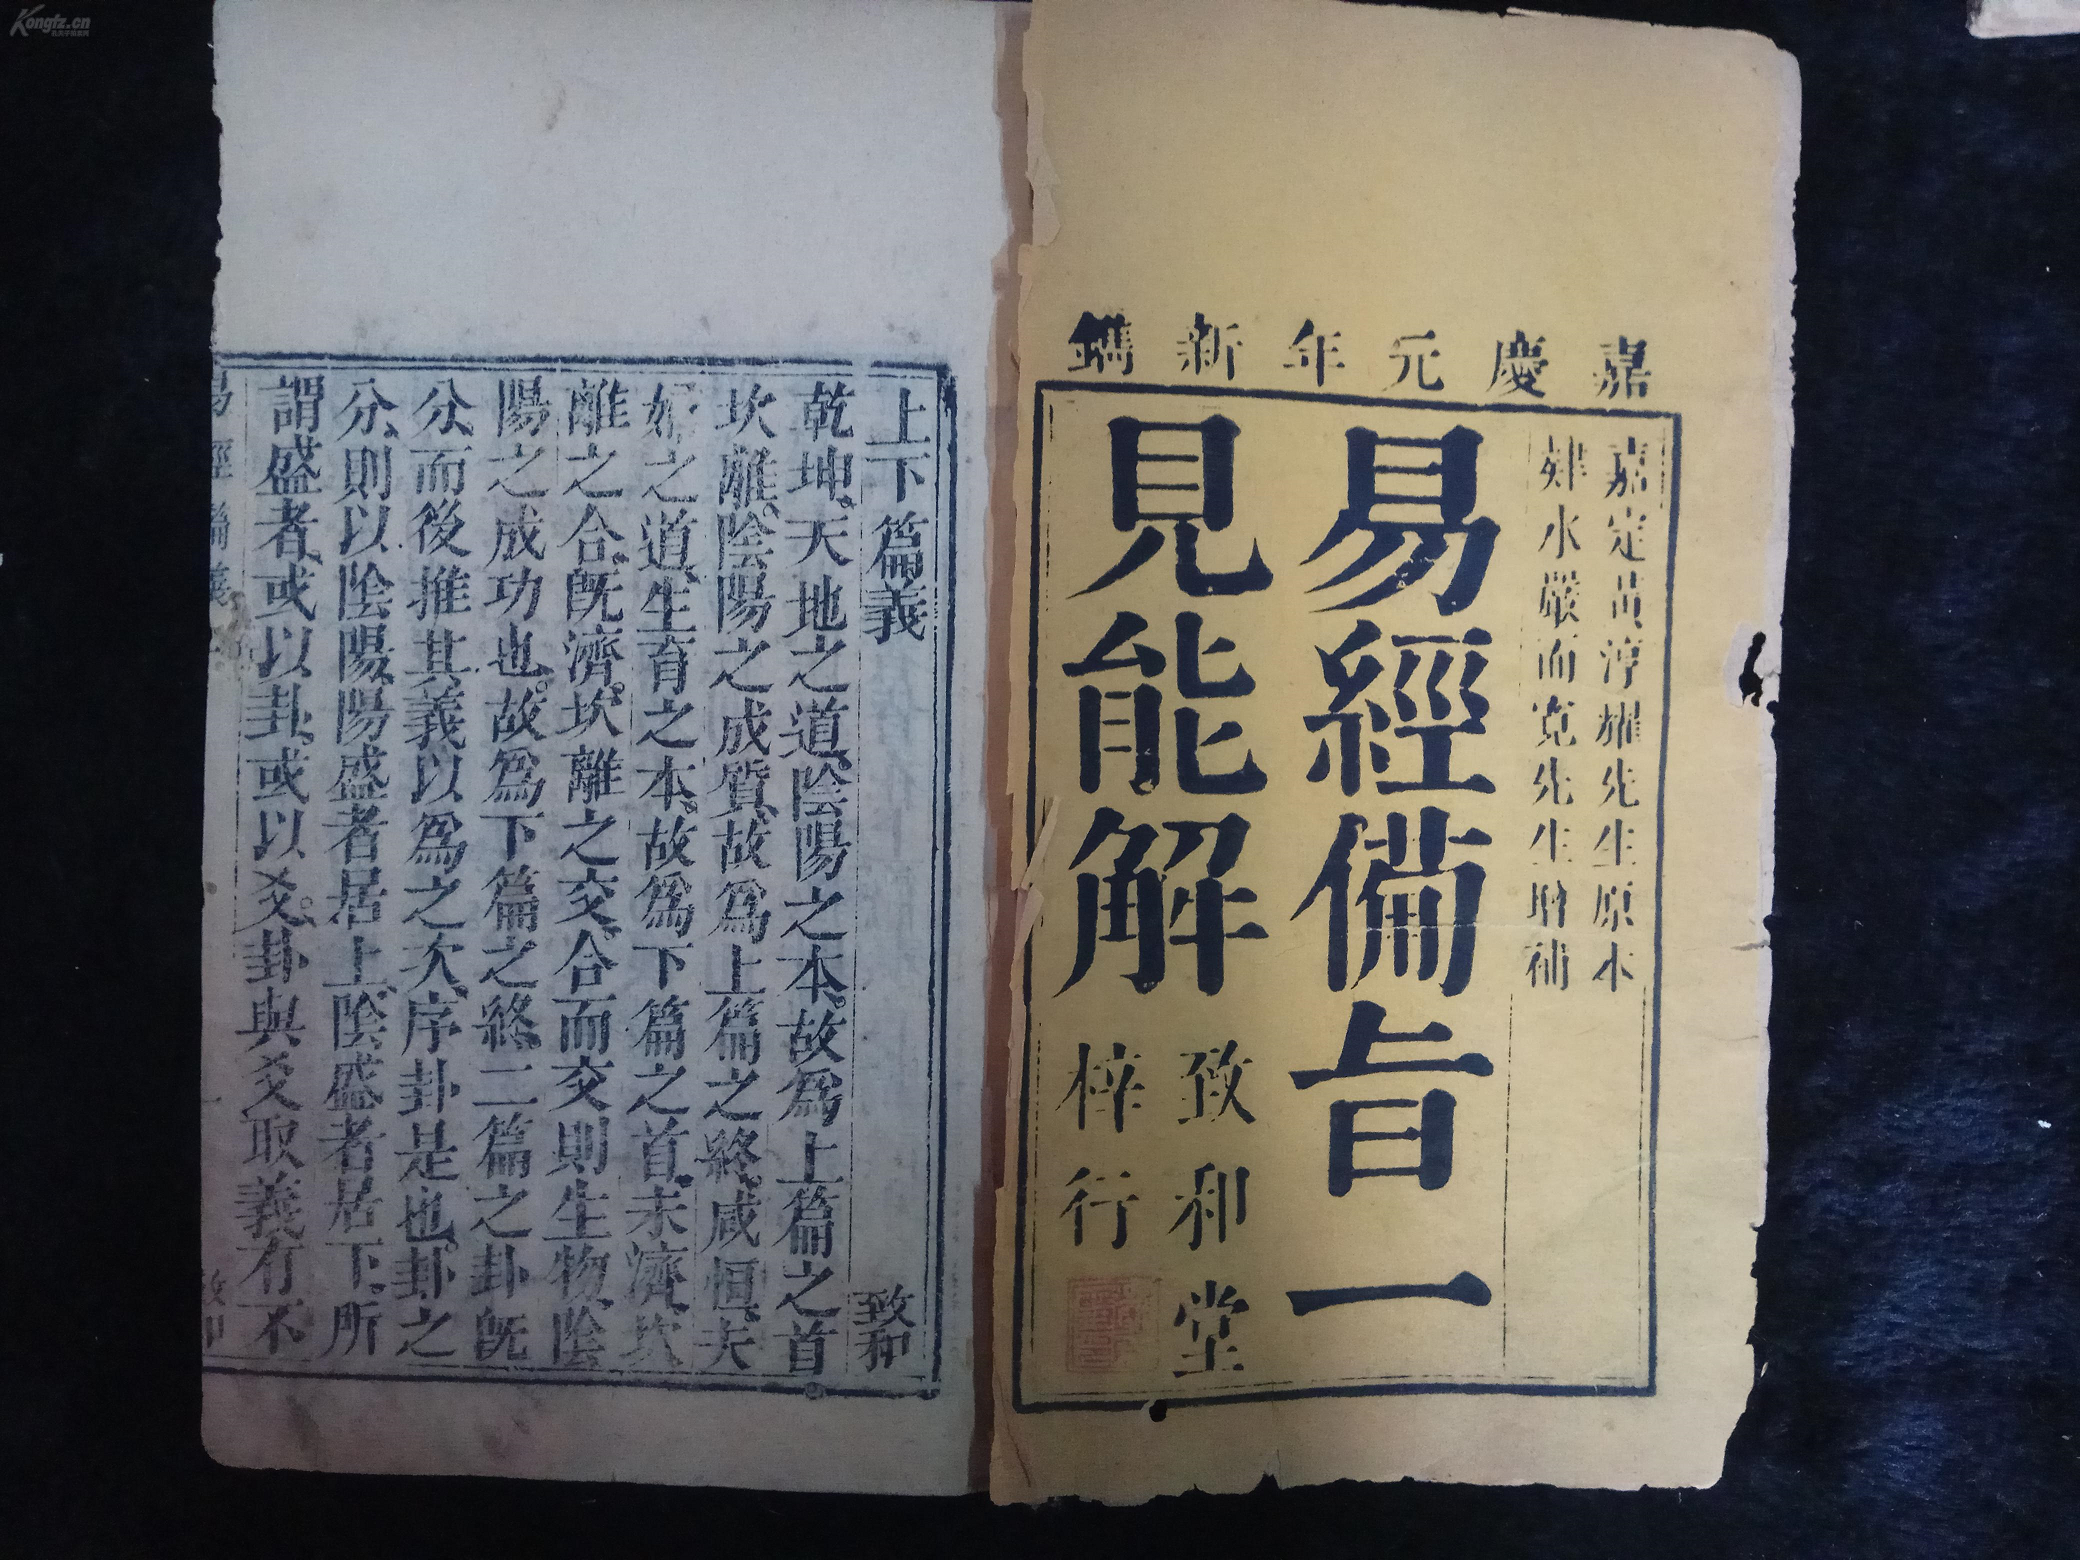 嘉慶元年新鐫
嘉定黃淳耀先生原本
婁水嚴而寬先生增補
易經備旨一
見能解
致和堂
梓行
上下篇義
致和
乾坤、天地之道、陰陽之本、故爲上篇之首
坎離、陰陽之成質、故爲上篇之終、咸恒、夫
婦之道、生育之本、故爲下篇之首、未濟、坎
離之合、旣濟、坎離之交、合而交則生物、陰
陽之成功也、故爲下篇之終、二篇之卦旣
分、而後推其義以爲之次、序卦是也、卦之
分、則以陰陽、陽盛者居上、陰盛者居下、所
謂盛者、或以卦、或以爻、卦與爻取義有不
Kongfz.cn